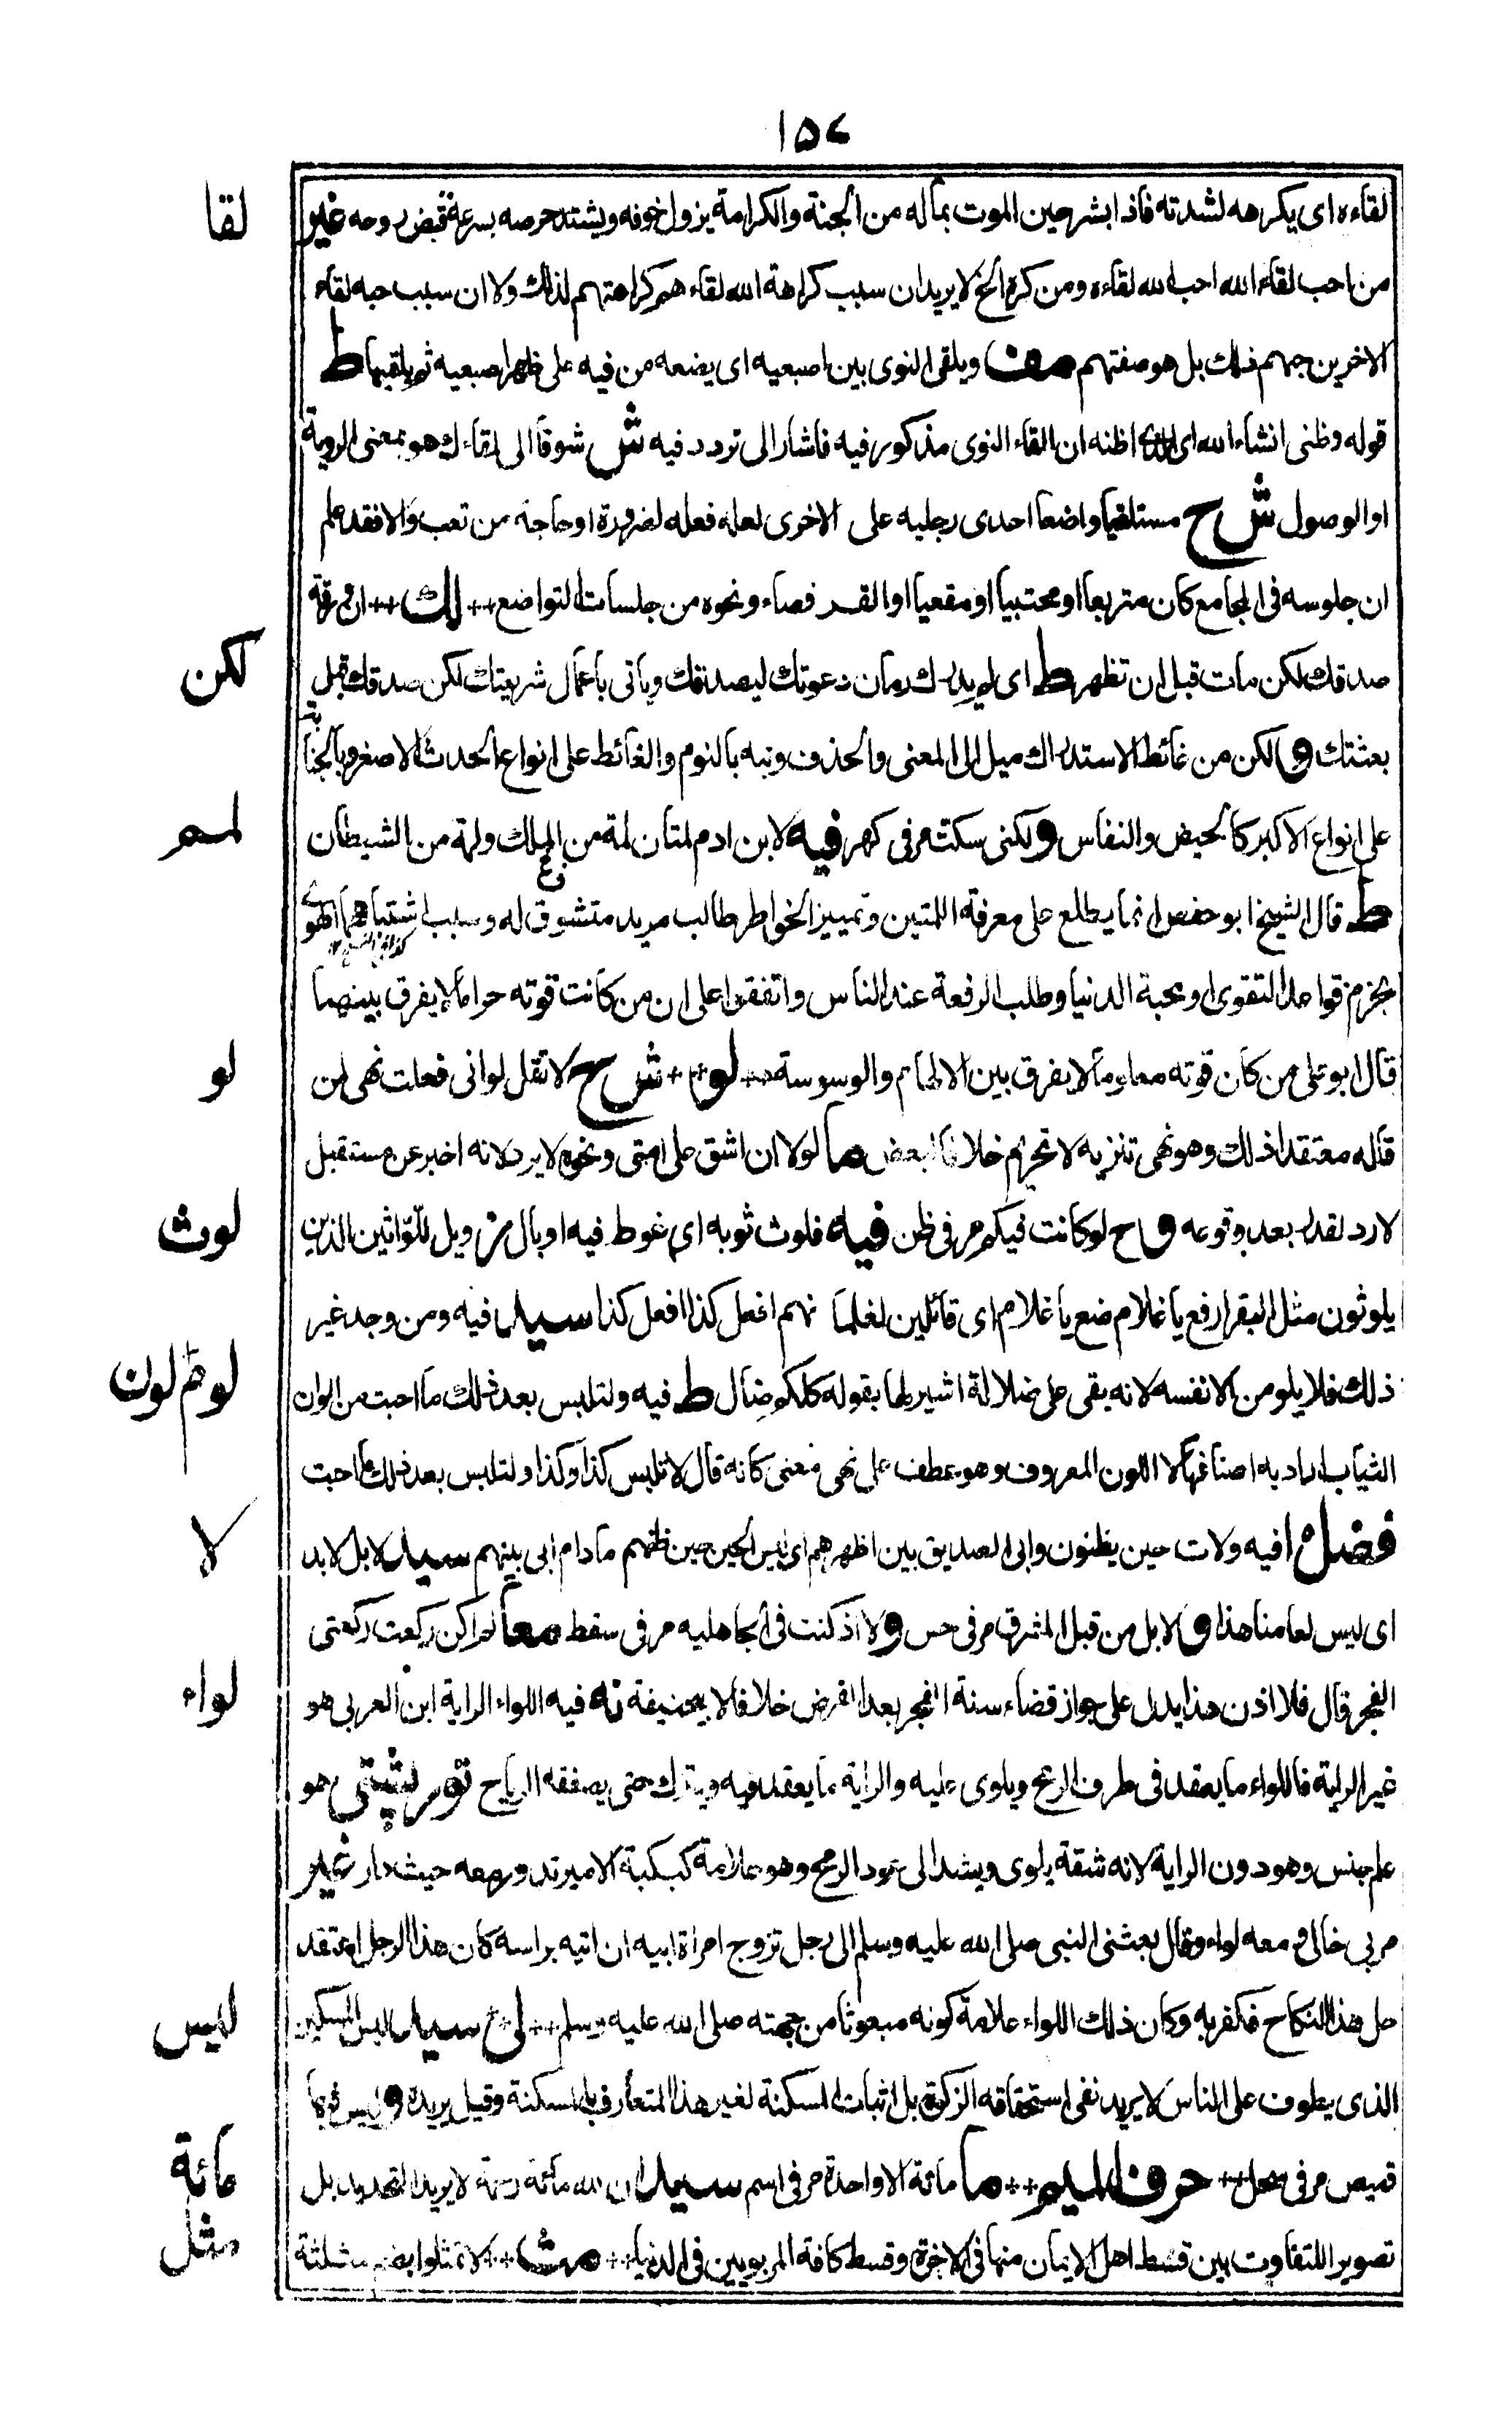 ١٥٤
لقا
لقاءه اى يكرهه لشدته فاذا بشر حين الموت بماله من الجنة والكرامة يزول خوفه ويشتد حرصه بسرعة قبض روحه غير
من احب لقاء الله احب الله لقاءه ومن كره الخ لا يريد ان سبب كراهة الله لقاءهم كراهتهم لذلك ولا ان سبب حبه لقاء
الاخرين حبهم ذلك بل هو صفتهم مف ويلقى النوى بين اصبعيه اى يضعه من فيه على ظهر اصبعيه ثم يلقيها ط
قوله وظنى انشاء الله اى الذى اظنه ان القاء النوى مذكور فيه فاشار الى تردد فيه ش شوقا الى لقاءك هو بمعنى الروية
او الوصول ش ح مستلقيا واضعا احدى رجليه على الاخرى لعله فعله لضرورة او حاجة من تعب والا فقد علم
ان جلوسه فى المجامع كان متربعا او محتبيا او مقعيا او القرفصاء ونحوه من جلسات التواضع لك ان ورقة
لكن
صدقك لكن مات قبل ان تظهر ط اى لم يدرك زمان دعوتك ليصدقك وياتى باعمال شريعتك لكن صدقك قبل
بعثتك و لكن من غائط الاستدراك ميل الى المعنى والحذف ونبه بالنوم والغائط على انواع الحدث الاصغر وبالجنابة
لمم
على انواع الاكبر كالحيض والنفاس و لكنى سكت مر فى كهر فيه لابن ادم لمتان لمة من الملك ولمة من الشيطان
ط قال الشيخ ابو حفص انما يطلع على معرفة اللمتين وتمييز الخواطر طالب مريد متشوق له وسبب اشتباهها الهوى
بخرم قواعد التقوى او محبة الدنيا وطلب الرفعة عند الناس واتفقوا على ان من كانت قوته حراما لا يفرق بينهما
لو
قال ابو على من كان قوته معلوما لا يفرق بين الالهام والوسوسة لو ش ح لا تقل لو انى فعلت نهى لمن
قاله معتقدا ذلك وهو نهى تنزيه لا تحريم خلافا لبعض ما لولا ان اشق على امتى ونحوه لا يرد لانه اخبر عن مستقبل
لوث
لا رد لقدر بعد وقوعه و ح لو كانت فيكم مر فى ظن فيه فلوث ثوبه اى غوط فيه او بال ز ويل للواثين الذين
يلوثون مثل البقر ارفع يا غلام ضع يا غلام اى قائلين لغلمانهم افعل كذا افعل كذا سيد فيه ومن وجد غير
لوم لون
ذلك فلا يلومن الا نفسه لانه بقى على ضلالة اشير لها بقوله كلكم ضال ط فيه ولتلبس بعد ذلك ما احبت من الوان
الثياب اراد به اصنافها لا اللون المعروف وهو عطف على نهى معنى كانه قال لا تلبس كذا وكذا ولتلبس بعد ذلك ما احبت
لا
فضل ا فيه ولات حين يظنون وابى الصديق بين اظهرهم اى ليس الحين حين ظنهم ما دام ابى بينهم سيد لا بل لابد
اى ليس لعامنا هذا و لا بل من قبل المشرق مر فى حس و لا اذ كنت فى الجاهلية مر فى سقط معا لم اكن ركعت ركعتى
لواء
الفجر قال فلا اذن هذا يدل على جواز قضاء سنة الفجر بعد الفرض خلافا لابيحنيفة نه فيه اللواء الراية ابن العربى هو
غير الراية فاللواء ما يعقد فى طرف الرمح ويلوى عليه والراية ما يعقد فيه ويترك حتى يصفقه الرياح تورپشتى هو
علم جنس وهو دون الراية لانه شقة يلوى ويشد الى عود الرمح وهو علامة كبكبة الامير تدور معه حيث دار غير
مر بى خالى ومعه لواء وقال بعثنى النبى صلى الله عليه وسلم الى رجل تزوج امرأة ابيه ان اتيه براسه كان هذا الرجل اعتقد
ليس
حل هذا النكاح فكفر به وكان ذلك اللواء علامة كونه مبعوثا من جهته صلى الله عليه وسلم لى سيد ليس المسكين
الذى يطوف على الناس لا يريد نفى استحقاقه الزكوة بل اثبات المسكنة لغير هذا المتعارف بالمسكنة وقيل يريده و ليس فيها
مائة
قميص مر فى حرف الميم ما مائة الا واحدة مر فى اسم سيد ان لله مائة رحمة لا يريد التحديد بل
مثل
تصوير اللتفاوت بين قسط اهل الايمان منها فى الاخرة وقسط كافة المربوبين فى الدنيا مث لا تمثلوا بضم مثلثة